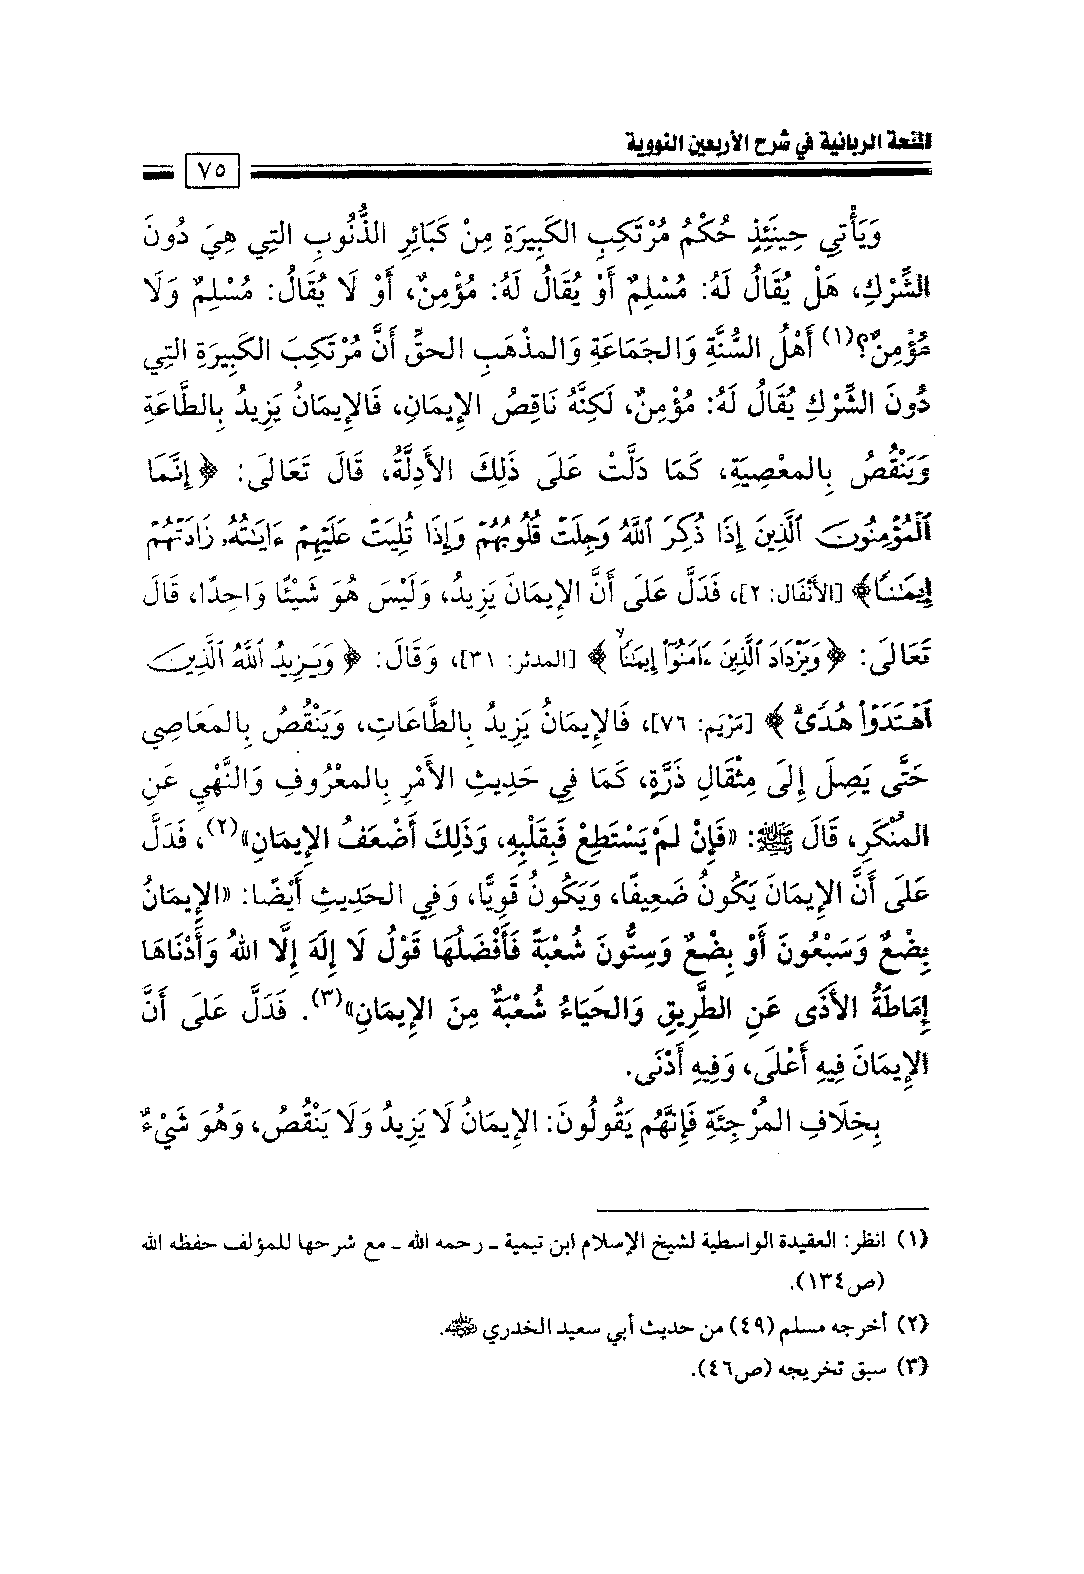 المنحة الربانية في شرح الأربعين النووية
٧٥
وَيَأْتِي حِينَئِذٍ حُكْمُ مُرْتَكِبِ الكَبِيرَةِ مِنْ كَبَائِرِ الذُّنُوبِ التِي هِيَ دُونَ
الشِّرْكِ، هَلْ يُقَالُ لَهُ: مُسْلِمٌ أَوْ يُقَالُ لَهُ: مُؤْمِنٌ، أَوْ لَا يُقَالُ: مُسْلِمٌ وَلَا
مُؤْمِنٌ؟(١) أَهْلُ السُّنَّةِ وَالجَمَاعَةِ وَالمذْهَبِ الحقِّ أَنَّ مُرْتَكِبَ الكَبِيرَةِ التِي
دُونَ الشِّرْكِ يُقَالُ لَهُ: مُؤْمِنٌ، لَكِنَّهُ نَاقِصُ الإِيمَانِ، فَالإِيمَانُ يَزِيدُ بِالطَّاعَةِ
وَيَنْقُصُ بِالمعْصِيَةِ، كَمَا دَلَّتْ عَلَى ذَلِكَ الأَدِلَّةُ، قَالَ تَعَالَى: ﴿إِنَّمَا
ٱلْمُؤْمِنُونَ ٱلَّذِينَ إِذَا ذُكِرَ ٱللَّهُ وَجِلَتْ قُلُوبُهُمْ وَإِذَا تُلِيَتْ عَلَيْهِمْ ءَايَٰتُهُۥ زَادَتْهُمْ
إِيمَٰنًا﴾ [الأَنْفَال: ٢]، فَدَلَّ عَلَى أَنَّ الإِيمَانَ يَزِيدُ، وَلَيْسَ هُوَ شَيْئًا وَاحِدًا، قَالَ
تَعَالَى: ﴿وَيَزْدَادَ ٱلَّذِينَ ءَامَنُوٓا۟ إِيمَٰنًا﴾ [المدثر: ٣١]، وَقَالَ: ﴿وَيَزِيدُ ٱللَّهُ ٱلَّذِينَ
ٱهْتَدَوْا۟ هُدًى﴾ [مَرْيَم: ٧٦]، فَالإِيمَانُ يَزِيدُ بِالطَّاعَاتِ، وَيَنْقُصُ بِالمَعَاصِي
حَتَّى يَصِلَ إِلَى مِثْقَالِ ذَرَّةٍ، كَمَا فِي حَدِيثِ الأَمْرِ بِالمعْرُوفِ وَالنَّهْيِ عَنِ
المُنْكَرِ، قَالَ ﷺ: «فَإِنْ لَمْ يَسْتَطِعْ فَبِقَلْبِهِ، وَذَلِكَ أَضْعَفُ الإِيمَانِ»(٢)، فَدَلَّ
عَلَى أَنَّ الإِيمَانَ يَكُونُ ضَعِيفًا، وَيَكُونُ قَوِيًّا، وَفِي الحَدِيثِ أَيْضًا: «الإِيمَانُ
بِضْعٌ وَسَبْعُونَ أَوْ بِضْعٌ وَسِتُّونَ شُعْبَةً فَأَفْضَلُهَا قَوْلُ لَا إِلَهَ إِلَّا اللهُ وَأَدْنَاهَا
إِمَاطَةُ الأَذَى عَنِ الطَّرِيقِ وَالحَيَاءُ شُعْبَةٌ مِنَ الإِيمَانِ»(٣). فَدَلَّ عَلَى أَنَّ
الإِيمَانَ فِيهِ أَعْلَى، وَفِيهِ أَدْنَى.
بِخِلَافِ المُرْجِئَةِ فَإِنَّهُم يَقُولُونَ: الإِيمَانُ لَا يَزِيدُ وَلَا يَنْقُصُ، وَهُوَ شَيْءٌ
(١) انظر: العقيدة الواسطية لشيخ الإسلام ابن تيمية - رحمه الله - مع شرحها للمؤلف حفظه الله
(ص١٣٤).
(٢) أخرجه مسلم (٤٩) من حديث أبي سعيد الخدري رضي الله عنه.
(٣) سبق تخريجه (ص٤٦).